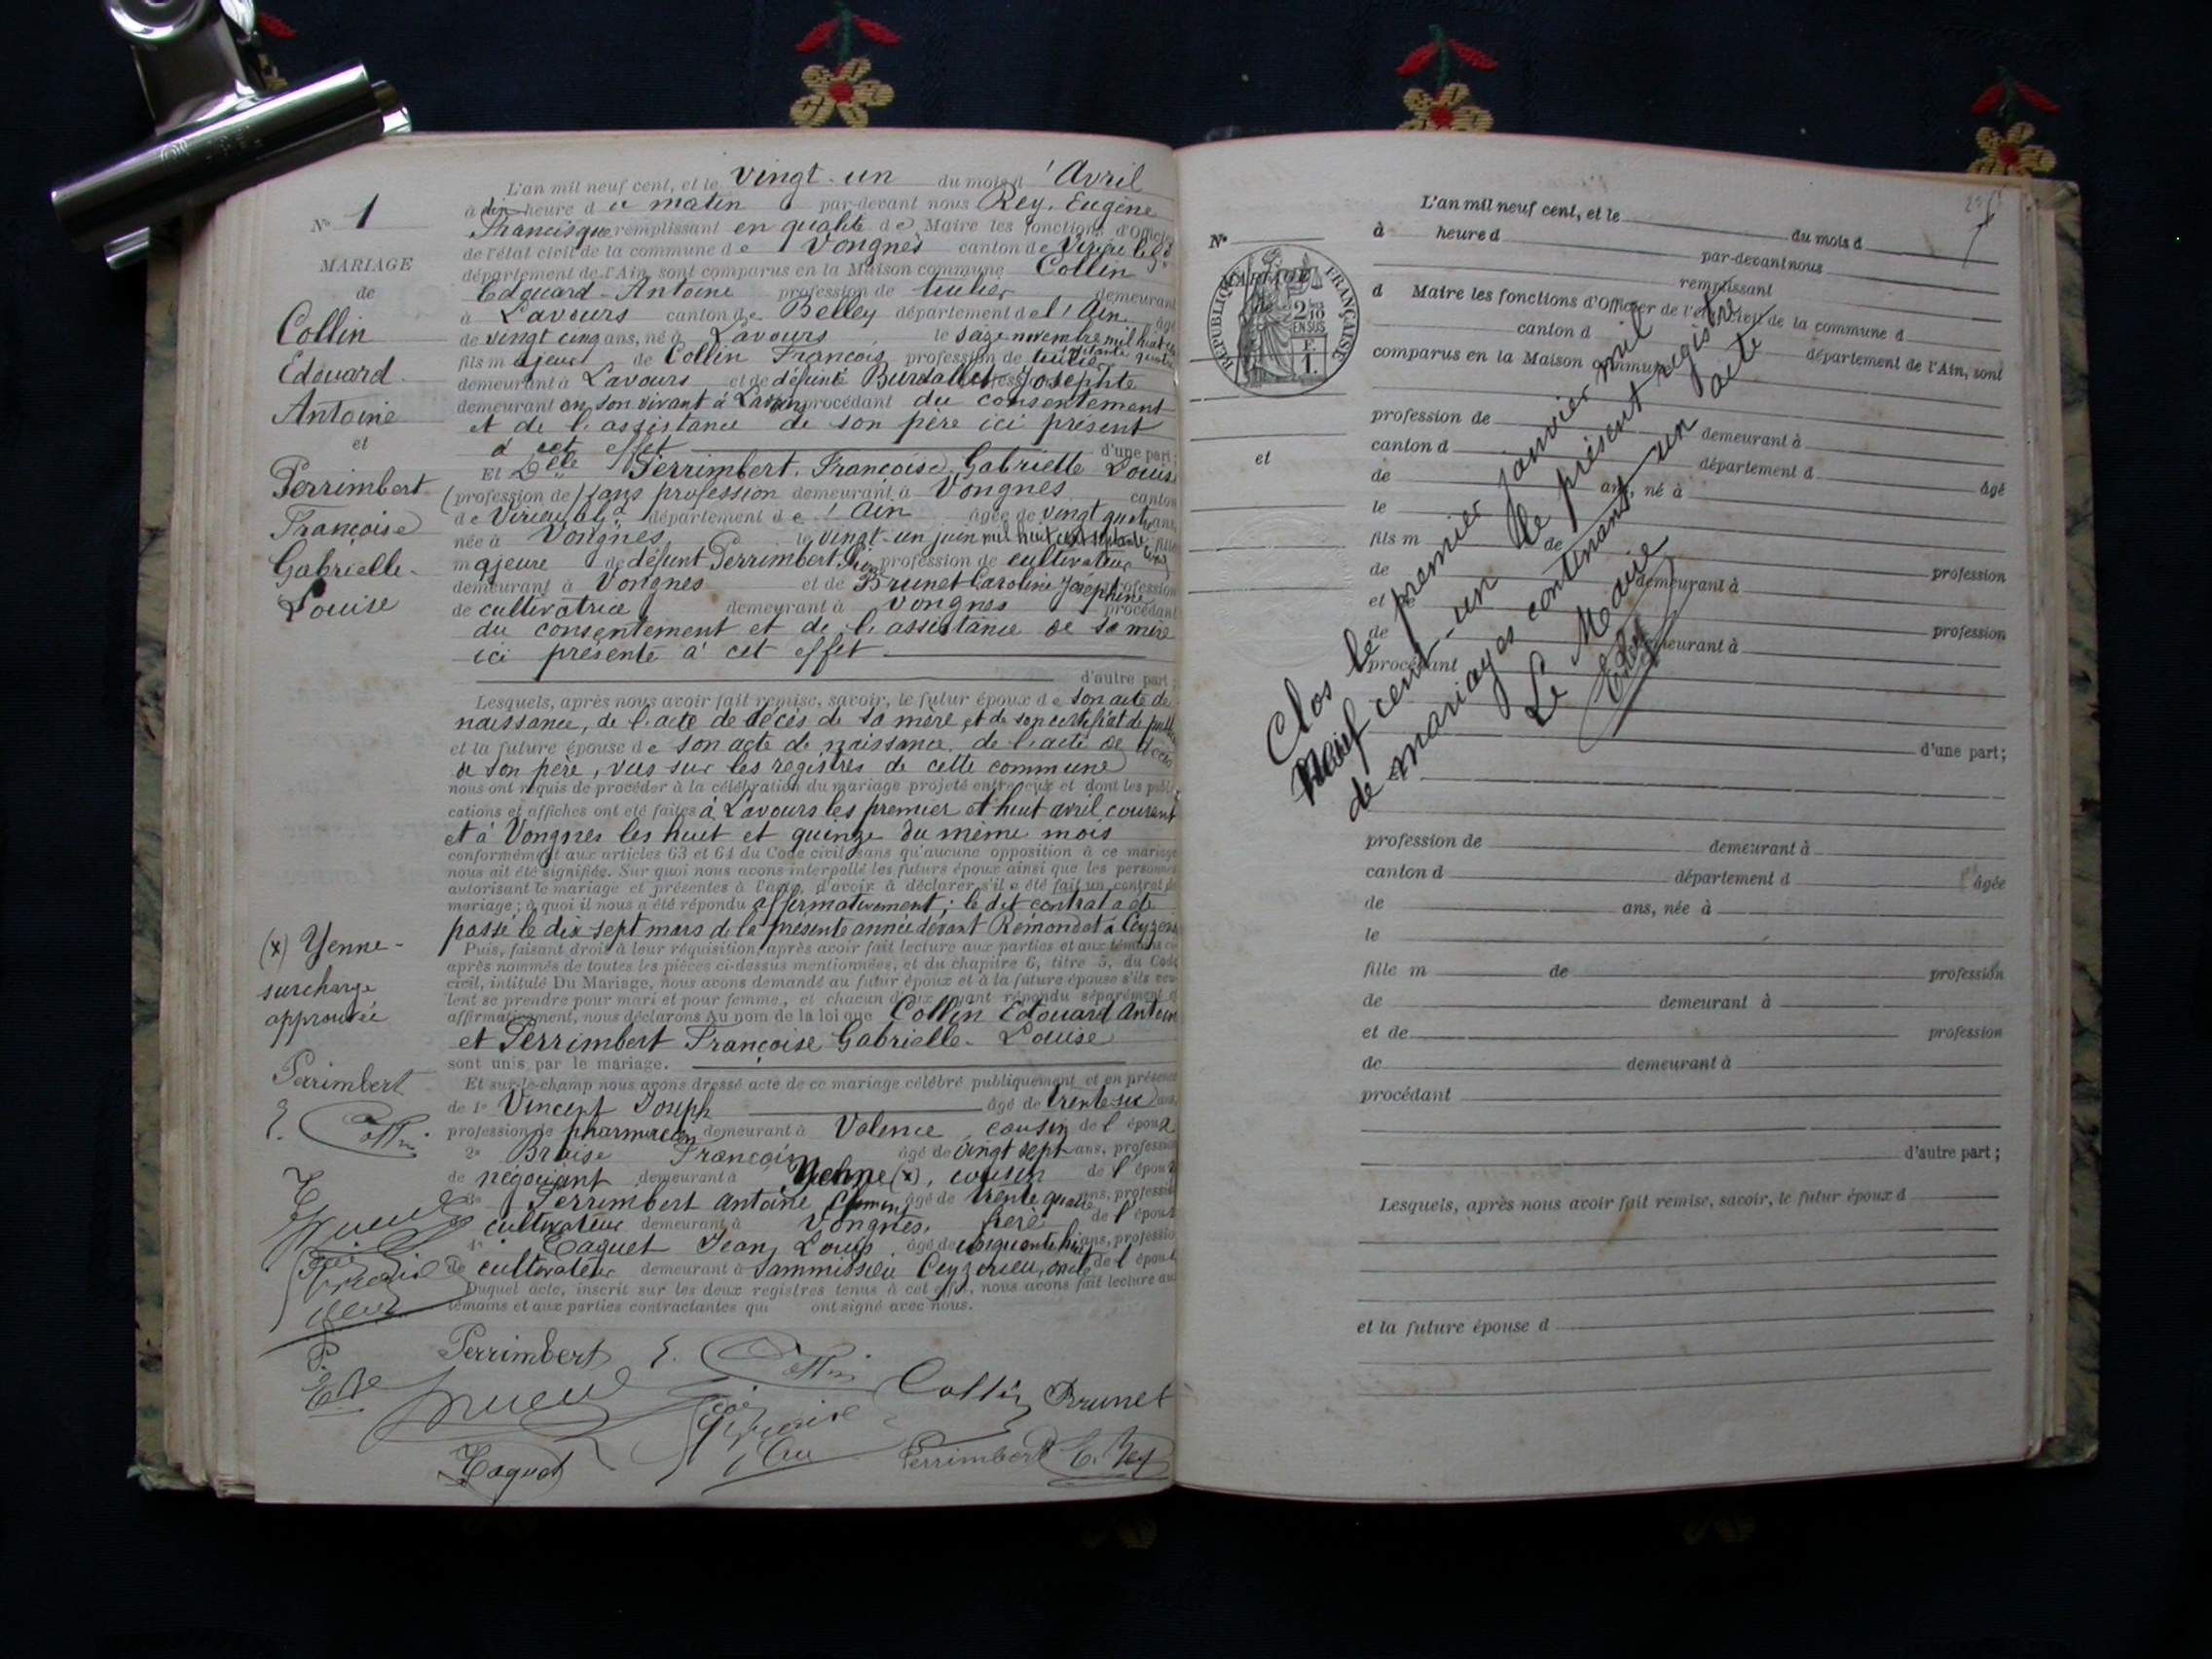 L'an mil neuf cent, et le vingt-un du mois d'Avril
à dix heure du matin par-devant nous Rey, Eugène
N° 1
Francisque remplissant en qualité de Maire les fonctions d'Officier
de l'état civil de la commune de Vongnes canton de Virieu le Gd
MARIAGE
département de l'Ain, sont comparus en la Maison commune Collin
de
Edouard-Antoine profession de demeurant
à Lavours canton de Belley département de l'Ain âgé
Collin
de vingt cinq ans, né à Lavours le seize novembre mil huit cent
soixante quatorze
fils majeur de Collin François profession de
Edouard
demeurant à Lavours et de défunte Josephte
Antoine
demeurant en son vivant à Lavours procédant du consentement
et de l'assistance de son père ici présent
et
à cet effet d'une part;
Et Delle Perrimbert, Françoise, Gabrielle Louise
Perrimbert
(profession de) sans profession demeurant à Vongnes canton
Françoise
de Virieu le gd département de l'Ain âgée de vingt quatre ans
née à Vongnes le vingt-un juin mil huit cent fille
Gabrielle-
majeure de défunt Perrimbert profession de cultivateur
demeurant à Vongnes et de Brunet Caroline Joséphine profession
Louise
de cultivatrice demeurant à Vongnes procédant
du consentement et de l'assistance de sa mère
ici présente à cet effet
d'autre part;
Lesquels, après nous avoir fait remise, savoir, le futur époux de son acte de
naissance, de l'acte de décès de sa mère et de son certificat de
et la future épouse de son acte de naissance, de l'acte de décès
de son père, vus sur les registres de cette commune
nous ont requis de procéder à la célébration du mariage projeté entre eux et dont les publi-
cations et affiches ont été faites à Lavours les premier et huit avril courant
et à Vongnes les huit et quinze du même mois
conformément aux articles 63 et 64 du Code civil sans qu'aucune opposition à ce mariage
nous ait été signifiée. Sur quoi nous avons interpellé les futurs époux ainsi que les personnes
autorisant le mariage et présentes à l'acte, d'avoir à déclarer s'il a été fait un contrat de
mariage; à quoi il nous a été répondu affirmativement; le dit contrat a été
passé le dix sept mars de la présente année devant Rémondat à
(x) Yenne-
Puis, faisant droit à leur réquisition, après avoir fait lecture aux parties et aux témoins ci-
après nommés de toutes les pièces ci-dessus mentionnées, et du chapitre 6, titre 5, du Code
surcharge
civil, intitulé Du Mariage, nous avons demandé au futur époux et à la future épouse s'ils veu-
lent se prendre pour mari et pour femme, et chacun d'eux ayant répondu séparément et
approuvée
affirmativement, nous déclarons Au nom de la loi que Collin Edouard Antoine
et Perrimbert Françoise Gabrielle-Louise
sont unis par le mariage.
Perrimbert
Et sur-le-champ nous avons dressé acte de ce mariage célébré publiquement et en présence
de 1° Vincent Joseph âgé de trente six ans,
E. Collin
profession de pharmacien demeurant à Valence, cousin de l'époux
2° Braise François âgé de vingt sept ans, profession
de négociant demeurant à Yenne (x), cousin de l'époux
3° Perrimbert Antoine âgé de trente quatre ans, profession
cultivateur demeurant à Vongnes, frère de l'épouse
4° Taquet Jean, Louis, âgé de cinquante huit ans, profession
de cultivateur demeurant à Sammissieu Ceyzerieu, oncle de l'épouse
Duquel acte, inscrit sur les deux registres tenus à cet effet, nous avons fait lecture aux
témoins et aux parties contractantes qui ont signé avec nous.
Perrimbert E. Collin
Collin Brunet
Taquet Perrimbert E. Rey
L'an mil neuf cent, et le du mois d
N° à heure d par-devant nous
remplissant
d Maire les fonctions d'Officier de l'état civil de la commune d
canton d département de l'Ain, sont
comparus en la Maison commune
RÉPUBLIQUE FRANÇAISE
2/10
EN SUS
F.
1.
profession de demeurant à
canton d département d âgé
et
de ans, né à
le
fils m de profession
de demeurant à
et de profession
de demeurant à
procédant
d'une part;
Clos le premier janvier mil
neuf cent-un le présent registre
de mariages contenant un acte
Le Maire
E. Rey
profession de demeurant à
canton d département d âgée
de ans, née à
le
fille m de profession
de demeurant à
et de profession
de demeurant à
procédant
d'autre part;
Lesquels, après nous avoir fait remise, savoir, le futur époux d
et la future épouse d